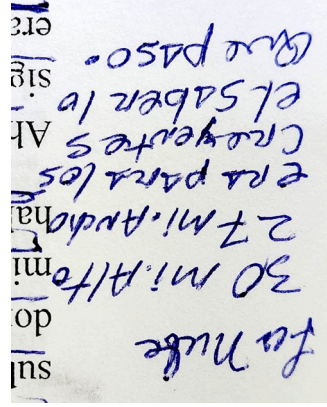 La Nube
sub
30 mi. Alto
mi
27 mi. Ancho
era para los
creyentes
Ah
el saber lo
sig
Que paso.
era